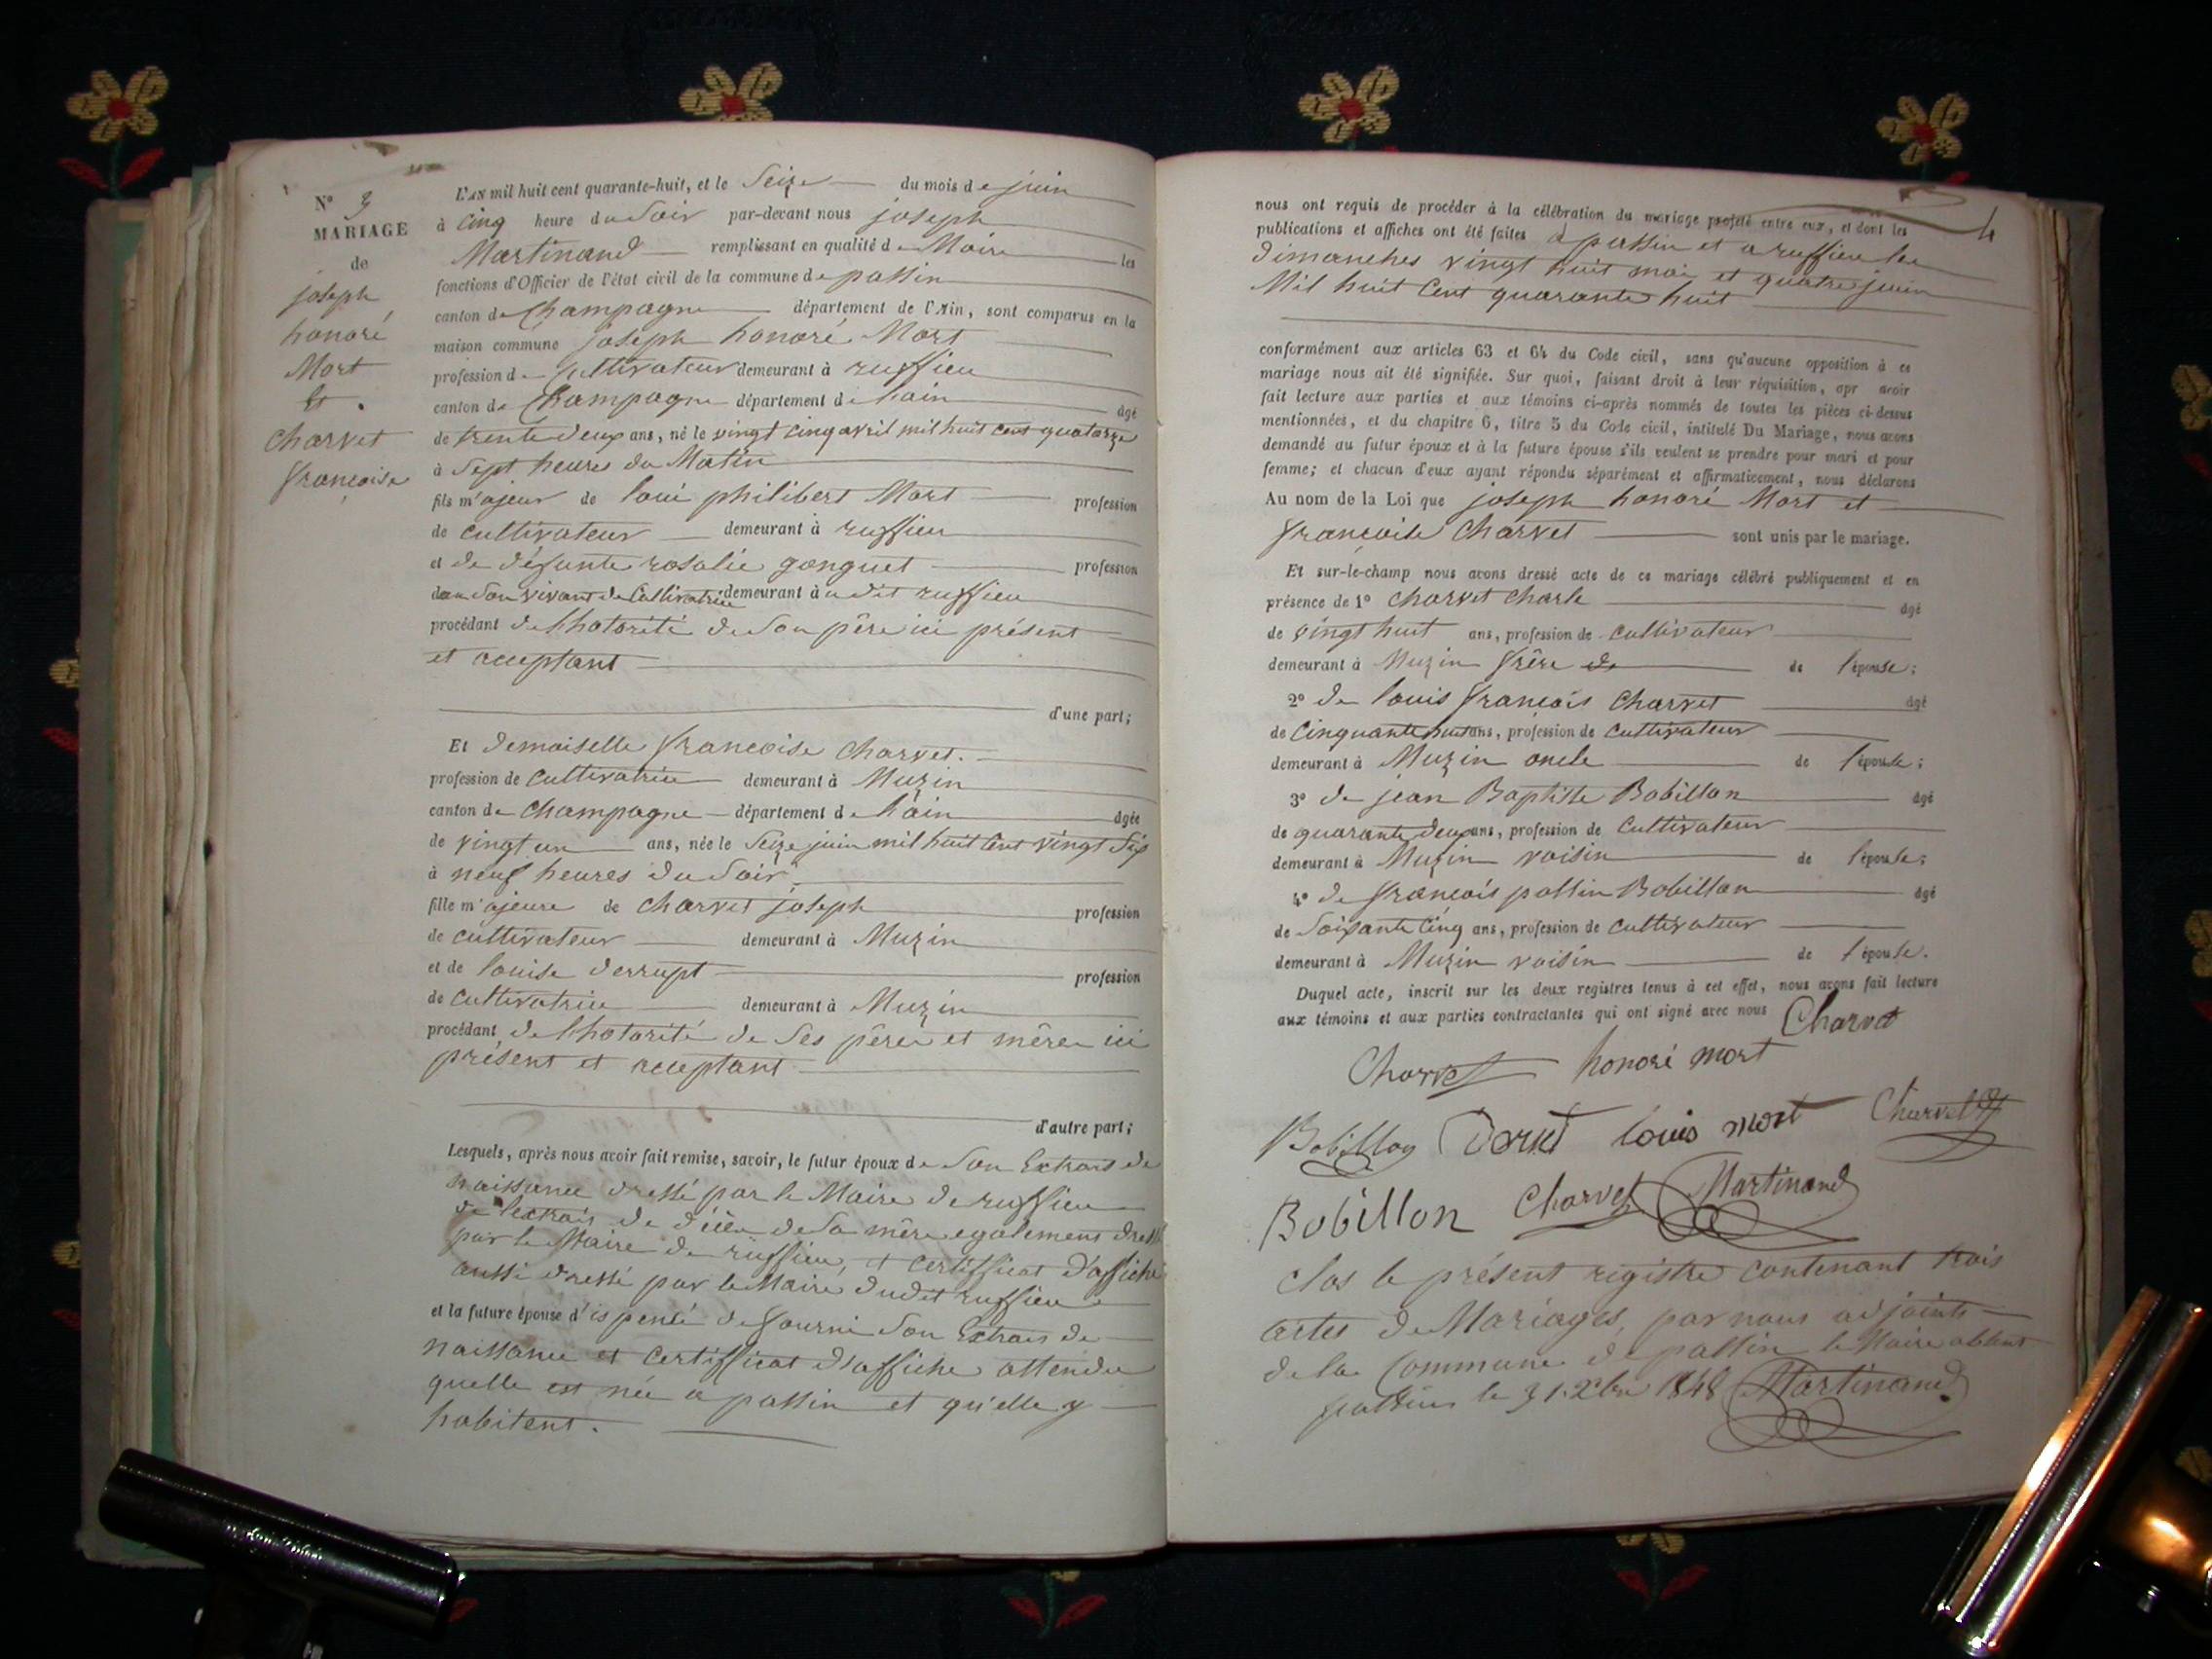 N° 3
MARIAGE
de
joseph
honoré
Mort
Et
Charvet
françoise
L'AN mil huit cent quarante-huit, et le Seize du mois de juin
à cinq heure du Soir par-devant nous joseph
Martinand remplissant en qualité de Maire les
fonctions d'Officier de l'état civil de la commune de passin
canton de Champagne département de l'Ain, sont comparus en la
maison commune joseph honoré Mort
profession de Cultivateur demeurant à ruffieu
canton de Champagne département de lain âgé
de trente deux ans, né le vingt cinq avril mil huit cent quatorze
à Sept heures du Matin
fils majeur de loui philibert Mort profession
de cultivateur demeurant à ruffieu
et de défunte rosalie gonguet profession
dan Son vivant de Cultivatrice demeurant à udit ruffieu
procédant de lhotorité de Son père ici présent
et aceptant
d'une part;
Et demoiselle francoise Charvet.
profession de Cultivatrice demeurant à Muzin
canton de Champagne département de lain âgée
de vingt un ans, née le Seize juin mil huit Cent vingt Six
à neuf heures du Soir
fille majeure de Charvet joseph profession
de cultivateur demeurant à Muzin
et de louise derrupt profession
de Cultivatrice demeurant à Muzin
procédant de lhotorité de Ses père et mère ici
présent et aceptant
d'autre part;
Lesquels, après nous avoir fait remise, savoir, le futur époux de Son Extrais de
naissance dressé par le Maire de ruffieu
de lextrais de décès de Sa mère egalement dressé
par le Maire de ruffieu, et certifficat d'affiche
aussi dressé par le Maire dudit ruffieu
et la future épouse d'ispensé de fourni Son Extrais de
naissance et Certifficat d'affiche attendu
quelle est née a passin et qu'elle y
habitent.
4
nous ont requis de procéder à la célébration du mariage projeté entre eux, et dont les
publications et affiches ont été faites a passin et a ruffieu les
dimanches vingt huit mai et quatre juin
Mil huit Cent quarante huit
conformément aux articles 63 et 64 du Code civil, sans qu'aucune opposition à ce
mariage nous ait été signifiée. Sur quoi, faisant droit à leur réquisition, apr avoir
fait lecture aux parties et aux témoins ci-après nommés de toutes les pièces ci-dessus
mentionnées, et du chapitre 6, titre 5 du Code civil, intitulé Du Mariage, nous avons
demandé au futur époux et à la future épouse s'ils veulent se prendre pour mari et pour
femme; et chacun d'eux ayant répondu séparément et affirmativement, nous déclarons
Au nom de la Loi que joseph honoré Mort et
françoise Charvet sont unis par le mariage.
Et sur-le-champ nous avons dressé acte de ce mariage célébré publiquement et en
présence de 1° Charvet Charle âgé
de vingt huit ans, profession de Cultivateur
demeurant à Muzin frère de de lépouse;
2° de louis françois Charvet âgé
de Cinquante huit ans, profession de Cultivateur
demeurant à Muzin oncle de lépouse;
3° de jean Baptiste Bobillon âgé
de quarante deux ans, profession de Cultivateur
demeurant à Muzin voisin de lépouse;
4° de françois passin Bobillon âgé
de Soixante Cinq ans, profession de Cultivateur
demeurant à Muzin voisin de lépouse.
Duquel acte, inscrit sur les deux registres tenus à cet effet, nous avons fait lecture
aux témoins et aux parties contractantes qui ont signé avec nous Charvet
Charvet honoré mort
Bobillon louis mort Charvet
Bobillon Charvet Martinand
Clos le présent registre contenant trois
actes de Mariages, par nous adjoints
de la Commune de passin le Maire absent
passin le 31 Xbre 1848 Martinand